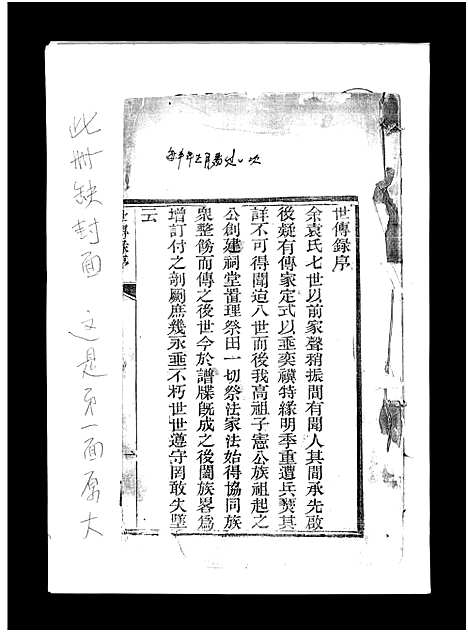 世傳錄序
余袁氏七世以前家聲稍振間有聞人其間承先啟
後疑有傳家定式以垂奕禩特緣明季重遭兵燹其
詳不可得聞迨八世而後我高祖子憲公族祖起之
公創建祠堂置理祭田一切祭法家法始得協同族
衆整飭而傳之後世今於譜牒旣成之後闔族畧爲
增訂付之剞劂庶幾永垂不朽世世遵守罔敢失墜
云
世傳錄序
此册缺封面 这是第一面